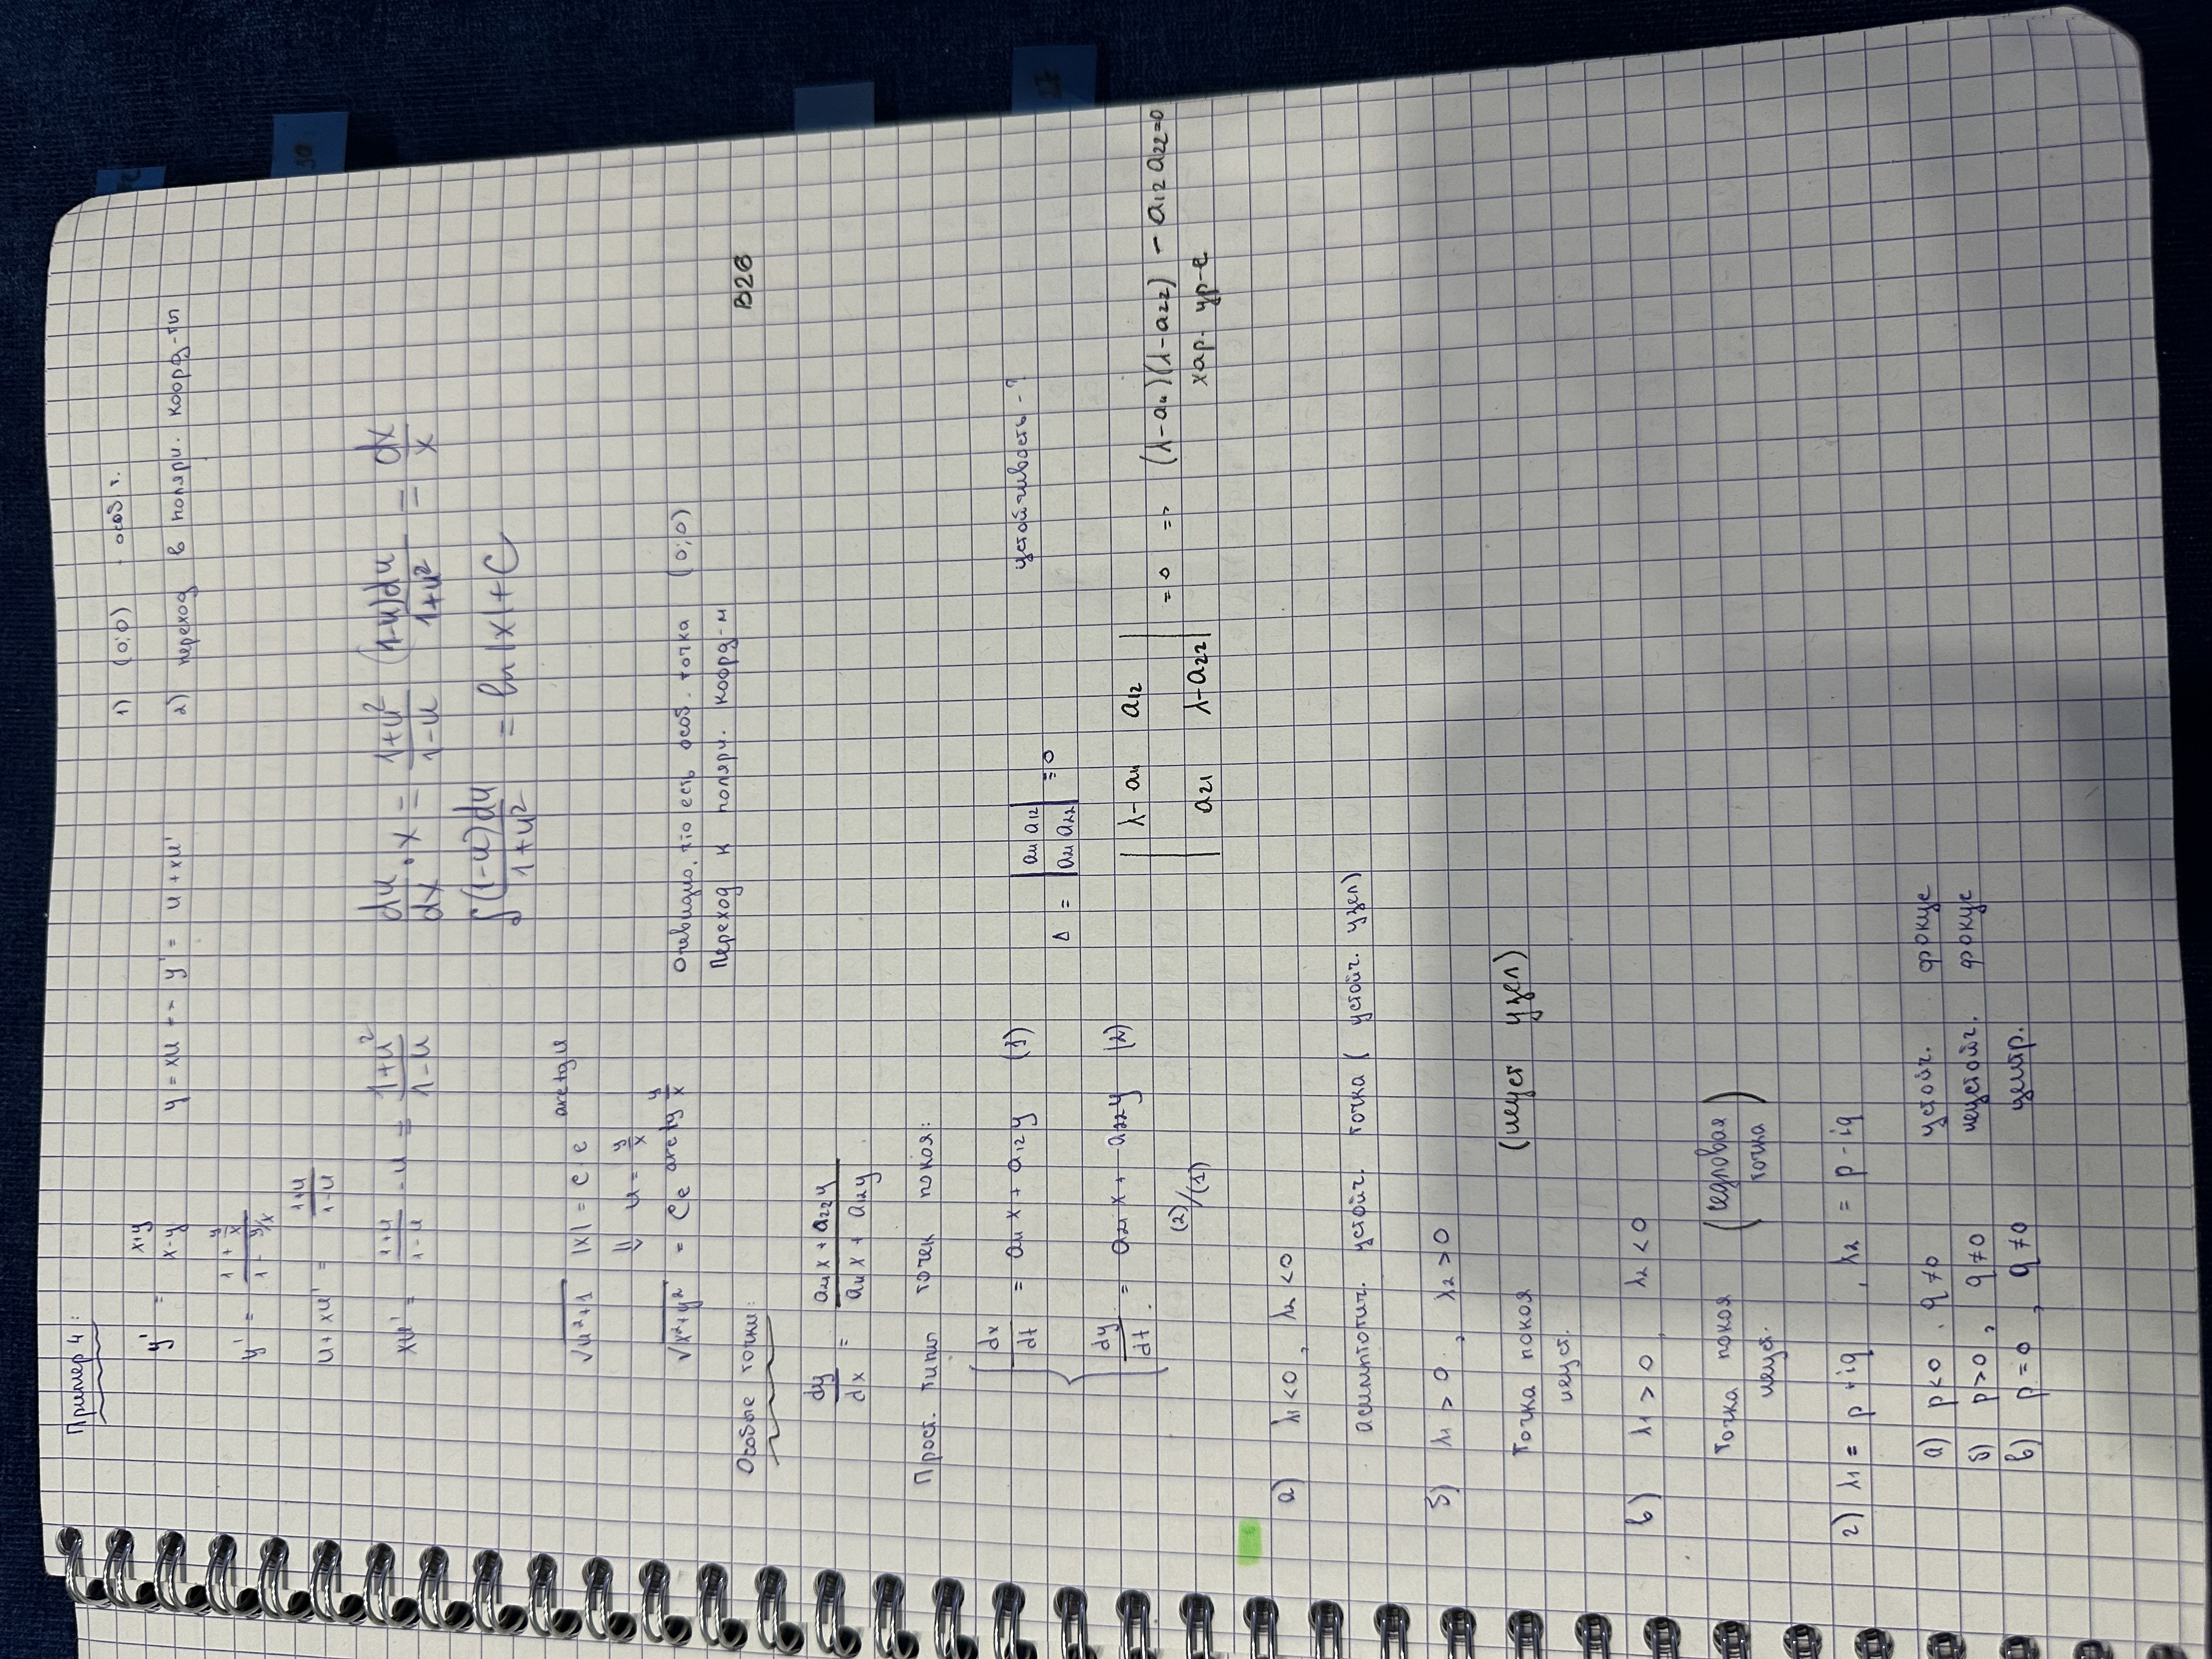 Пример 4:
1) (0;0) - особ. т.
y' = (x+y)/(x-y)
y = xu -- y' = u + xu'
2) переход в полярн. коорд-ты
y' = (1 + y/x)/(1 - y/x)
u + xu' = (1+u)/(1-u)
xu' = (1+u)/(1-u) - u = (1+u²)/(1-u)
du/dx · x = (1+u²)/(1-u)
(1-u)du/(1+u²) = dx/x
∫(1-u)du/(1+u²) = ln|x| + C
√(u²+1) |x| = C e^(arctg u)
⇓ u = y/x
√(x²+y²) = Ce^(arctg y/x)
Очевидно, что есть особ. точка (0;0)
Переход к полярн. коорд-м
Особые точки:
В26
dy/dx = (a₂₁x + a₂₂y)/(a₁₁x + a₁₂y)
Прост. типы точек покоя:
dx/dt = a₁₁x + a₁₂y (1)
Δ = |a₁₁ a₁₂; a₂₁ a₂₂| = 0
устойчивость - ?
dy/dt = a₂₁x + a₂₂y (2)
|λ-a₁₁ a₁₂; a₂₁ λ-a₂₂| = 0 => (λ-a₁₁)(λ-a₂₂) - a₁₂a₂₂=0
хар. ур-е
(2)/(1)
а) λ₁<0, λ₂<0
асимптотич. устойч. точка (устойч. узел)
б) λ₁ > 0, λ₂ > 0
Точка покоя (неуст узел)
неуст.
в) λ₁ > 0, λ₂ < 0
Точка покоя (седловая точка)
неуст.
г) λ₁ = p + iq, λ₂ = p - iq
а) p<0, q≠0 устойч. фокус
б) p>0, q≠0 неустойч. фокус
в) p=0, q≠0 центр.